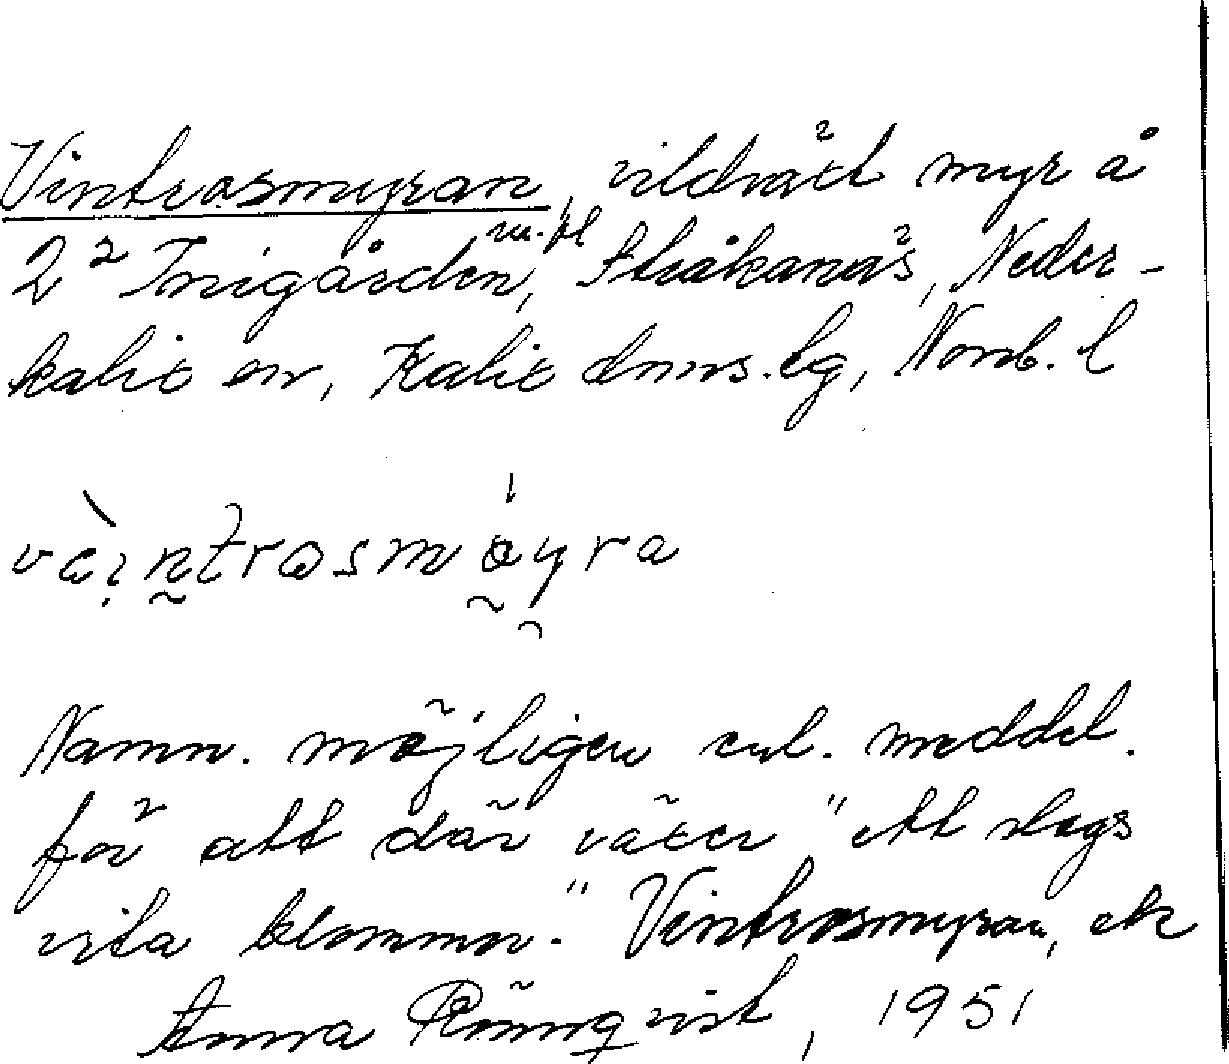 Vintrosmyran, vildvätt myr å
m.fl
2² Innigården, Stråkanäs, Neder-
kalix sn, Kalix dms.lg, Norrb. l
Namn. möjligen enl. meddel.
för att där växer "ett slags
vita blommor." Vintrosmyran, ek
Anna Rönnqvist, 1951